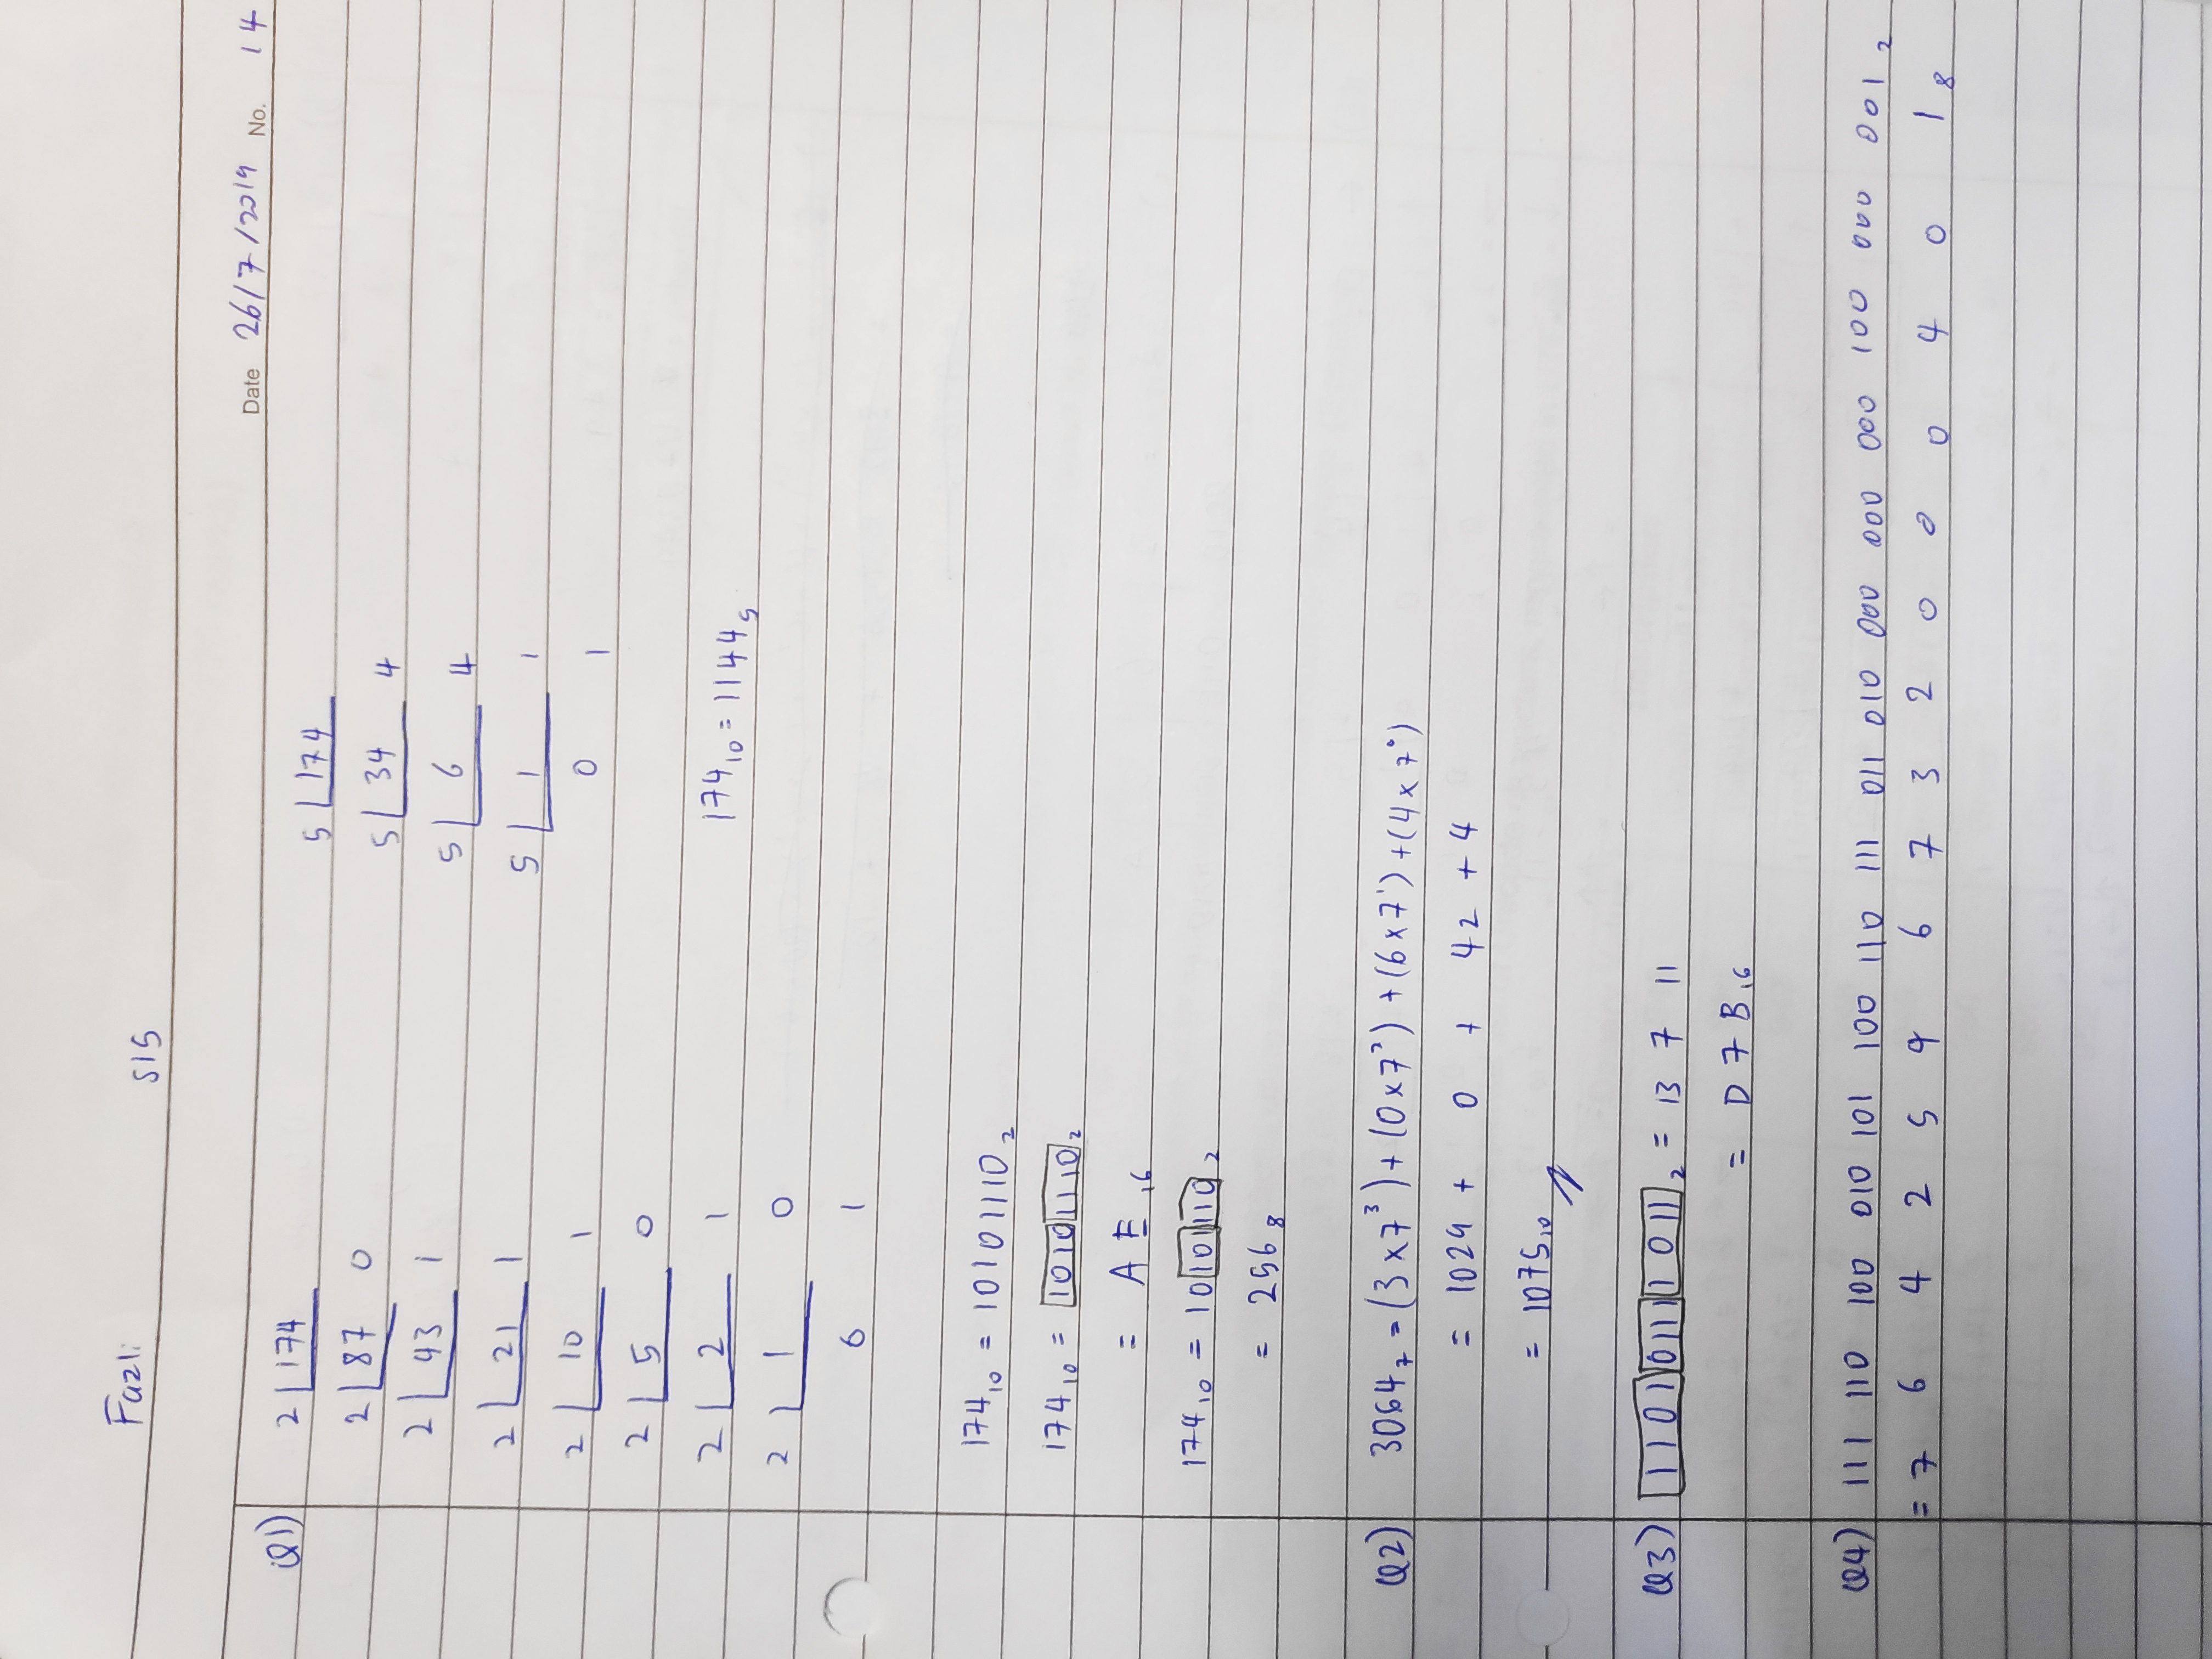 Fazli SIS
Date 26/7/2019 No. 14
Q1) 2 174
2 87 0
2 43 1
2 21 1
2 10 1
2 5 0
2 2 1
2 1 0
0 1
5 174
5 34 4
5 6 4
5 1 1
0 1
174₁₀ = 1144₅
174₁₀ = 10101110₂
174₁₀ = 10101110₂
= AE₁₆
174₁₀ = 10101110₂
= 256₈
Q2) 3064₇ = (3 × 7³) + (0 × 7²) + (6 × 7¹) + (4 × 7⁰)
= 1029 + 0 + 42 + 4
= 1075₁₀
Q3) 110101111011₂ = 13 7 11
= D7B₁₆
Q4) 111 110 100 010 101 100 110 111 011 010 000 000 000 100 000 001₂
= 7 6 4 2 5 4 6 7 3 2 0 0 0 4 0 1₈